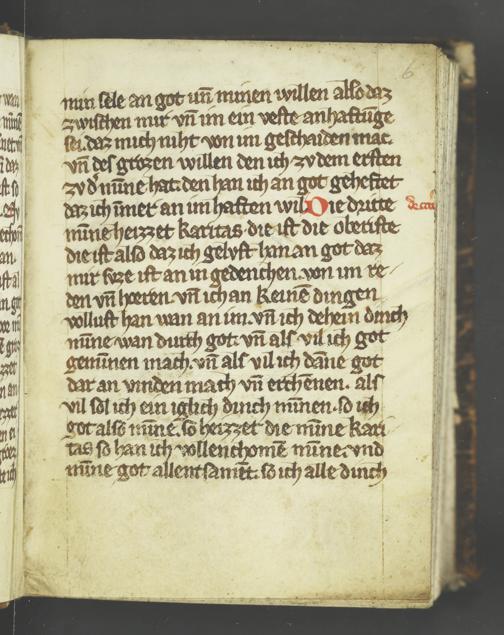 6
min sele an got uñ minen willen also daz
zwischen mir uñ im ein veste anhaftunge
sei. daz mich niht von im gescheiden mac.
uñ des grozen willen den ich zv dem ersten
zv d᾽ miñe hat. den han ich an got geheftet
daz ich im̄et an im haften wil. Die dritte
miñe heizzet Karitas. die ist die oberiste
die ist also daz ich gelvst han an got daz
mir svze ist an in gedenchen. von im re-
den uñ hoeren. uñ ich an keinē dingen
vollust han wan an im. uñ ich dehein dinch
miñe wan durch got. uñ als vil ich got
gemiñen mach. uñ als vil ich dāne got
dar an vinden mach uñ erchēnen. als
vil sol ich ein iglich dinch miñen. so ich
got also miñe. so heizzet die miñe kari
tas so han ich vollenchomē miñe. vnd
miñe got allentsamēt. so ich alle dinch